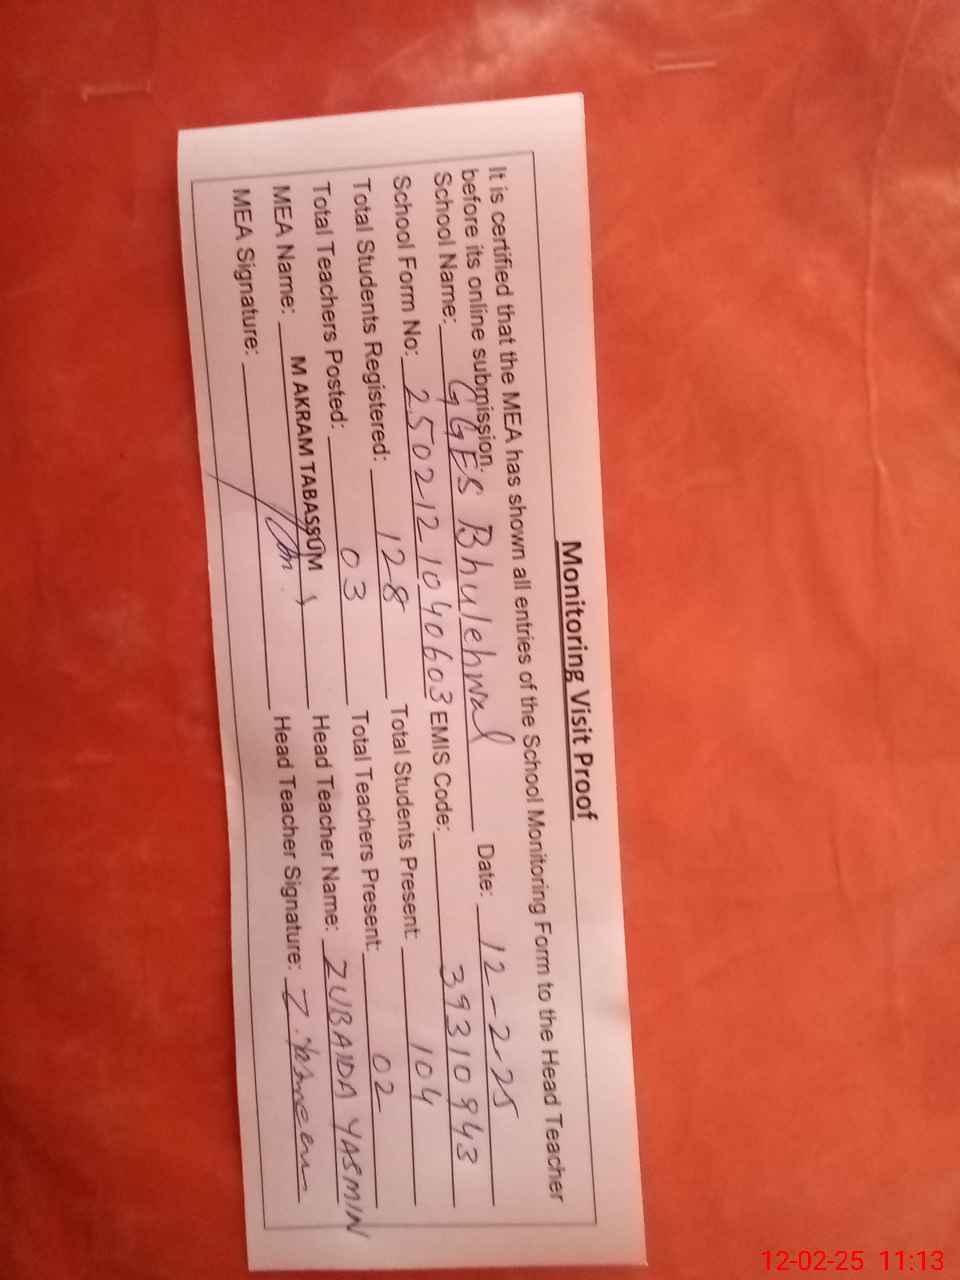 Monitoring Visit Proof
It is certified that the MEA has shown all entries of the School Monitoring Form to the Head Teacher
before its online submission.
School Name: GGES Bhulehwal Date: 12-2-25
School Form No: 250212 1040603 EMIS Code: 39310943
Total Students Registered: 128 Total Students Present: 104
Total Teachers Posted: 03 Total Teachers Present: 02
MEA Name: M AKRAM TABASSUM Head Teacher Name: ZUBAIDA YASMIN
MEA Signature: Head Teacher Signature: Z. Yasmeen
12-02-25 11:13